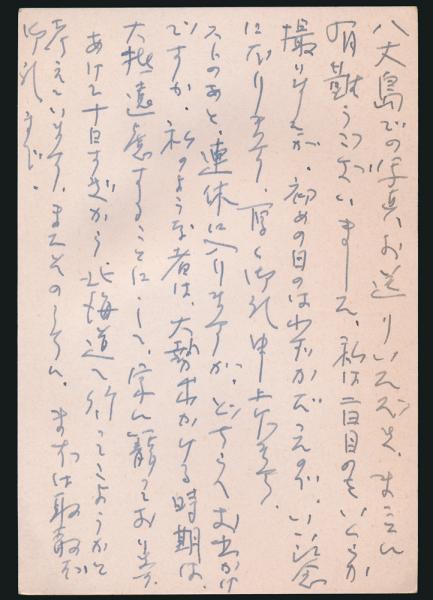 八丈島での写真、お送りいただき、まことに
有難うございました、私は二日目のをいくらか
撮りましたが、初めの日のはわずかだったので、いい記念
になります。厚く御礼申上げます。
ストのあと、連休に入りますが、どちらへお出かけ
ですか、私のような者は、大勢出かける時期は、
大抵遠慮することにして、家に籠っております
あけて十日すぎから、北海道へ行ってこようかと
考えています、まだそのうちに、まずは取敢ず
御礼まで。